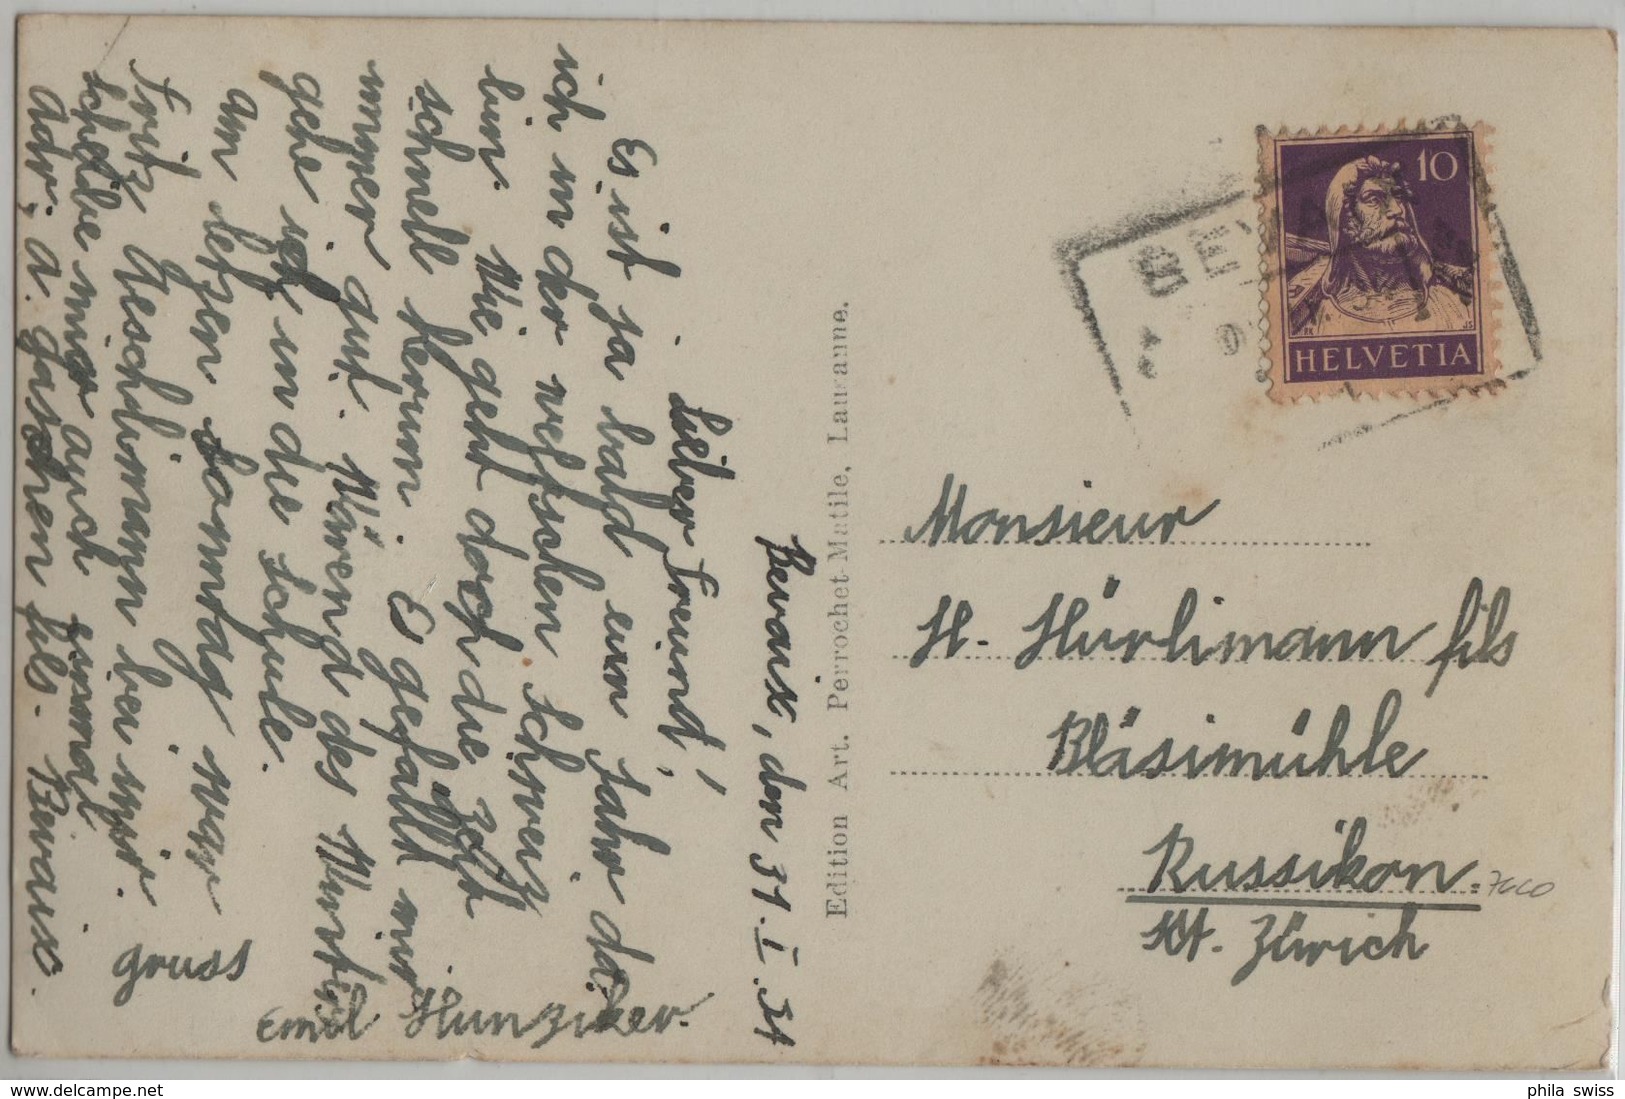 Bevaix, den 31. I. 31
Lieber Freund!
Es ist ja bald ein Jahr das
ich in der welschen Schweiz
bin. Wie geht doch die zeit
schnell herum. Es gefallt mir
immer gut. Wärend des Winters
gehe ich in die Schule.
am letzen Sonntag war
Fritz Aeschlimann bei mir.
schreibe mir auch einmal
Adr: a. Gaschen fils. Bevaix.
gruss
Emil Hunziker.
Edition Art. Perrochet-Matile, Lausanne.
BEVAIX
10
HELVETIA
Monsieur
H. Hürlimann fils
Bläsimühle
Russikon.
Kt. Zürich
phila swiss